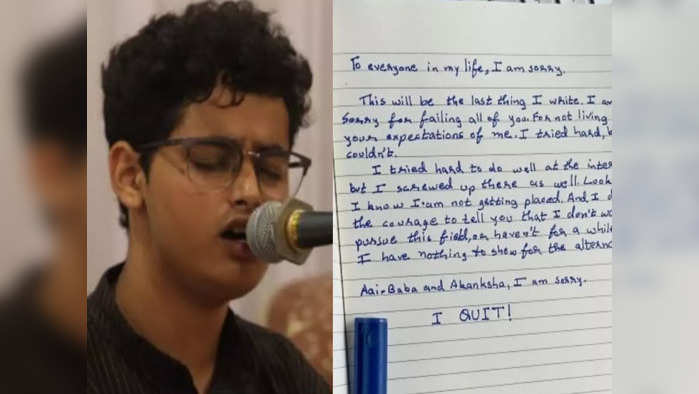 To everyone in my life, I am sorry.
This will be the last thing I write. I
sorry for failing all of you. For not living
your expectations of me. I tried hard,
couldn't.
I tried hard to do well at the
but I screwed up there as well.
I know I am not getting placed. And, I
the courage to tell you that I don't
pursue this field, or haven't for a while
I have nothing to show for the
Aai-Baba and Akanksha, I am sorry.
I QUIT!